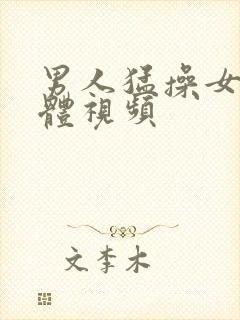 男人猛操女
體視頻
文李木